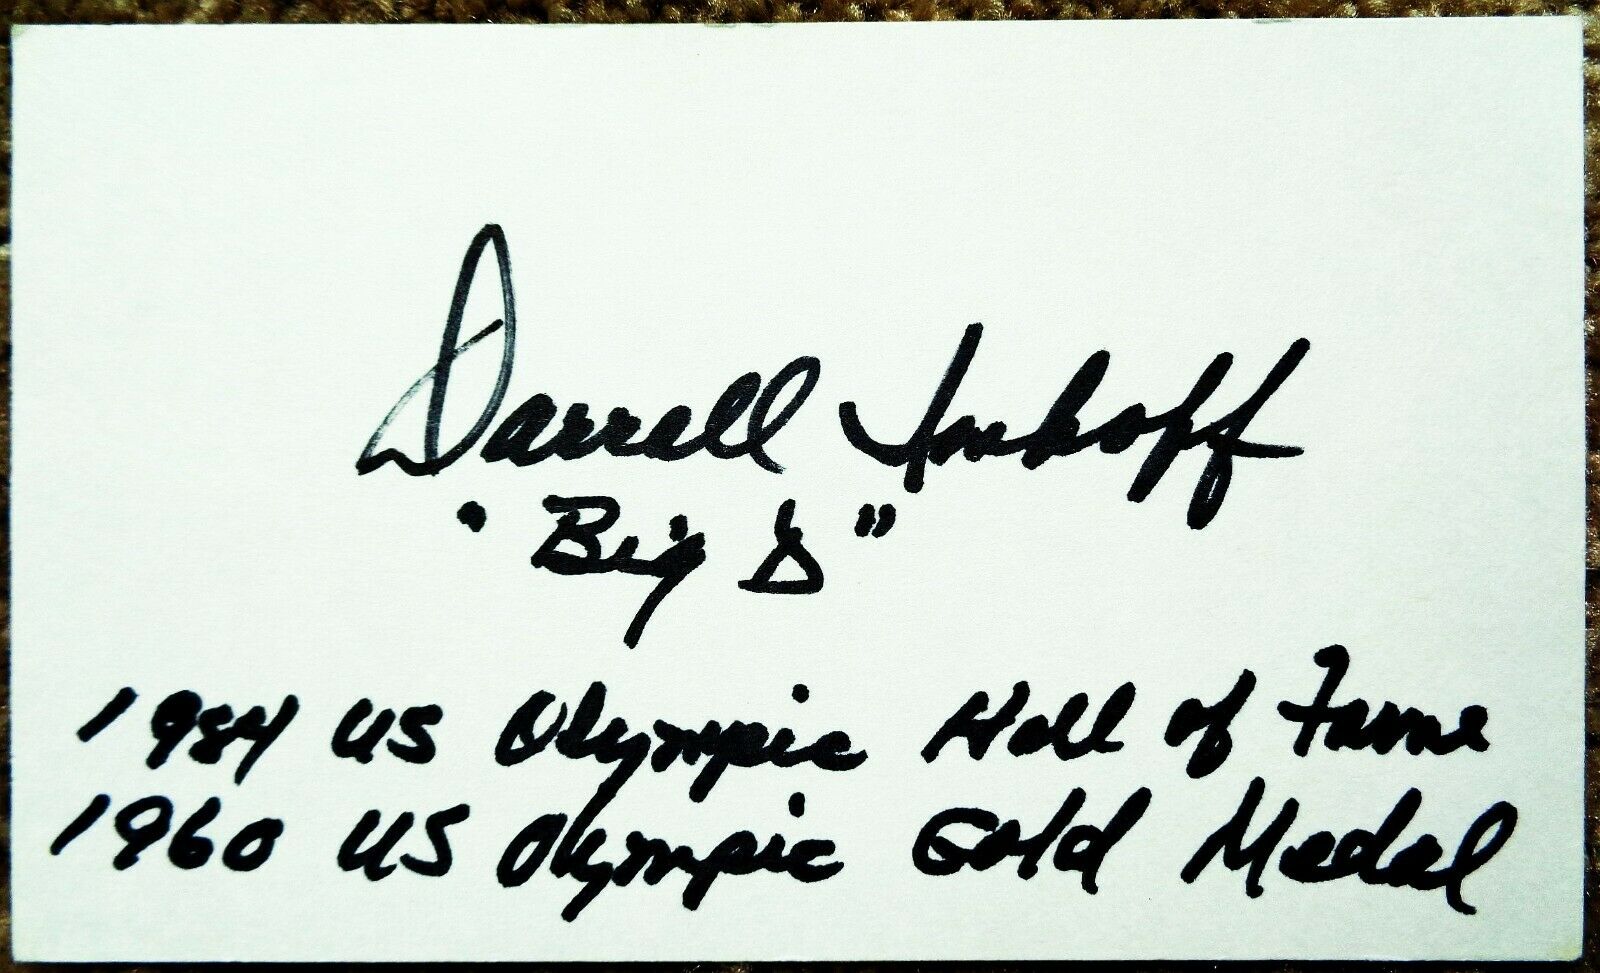 Darrell Imhoff
"Big D"
1984 US Olympic Hall of Fame
1960 US Olympic Gold Medal